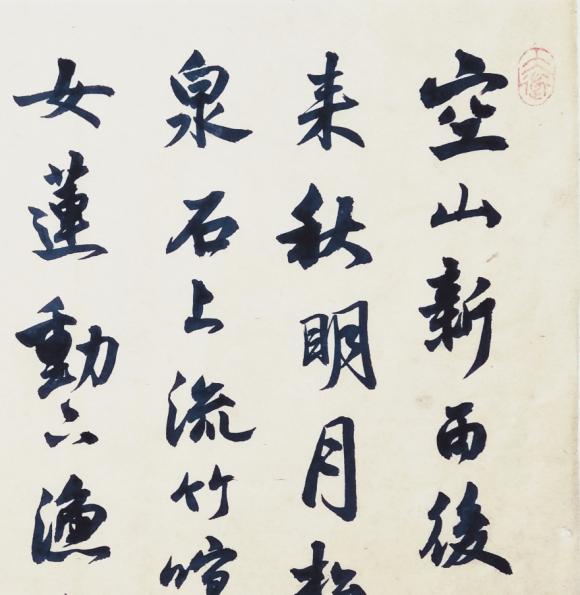 空山新雨後
来秋明月松
泉石上流竹喧
女蓮動下漁